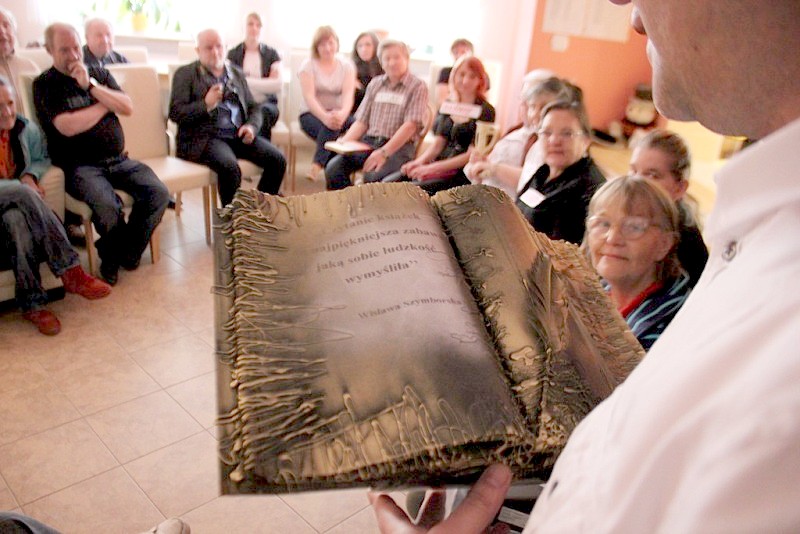 zytanie książek
najpiękniejsza zabawa
jaką sobie ludzkość
wymyśliła”
Wisława Szymborska